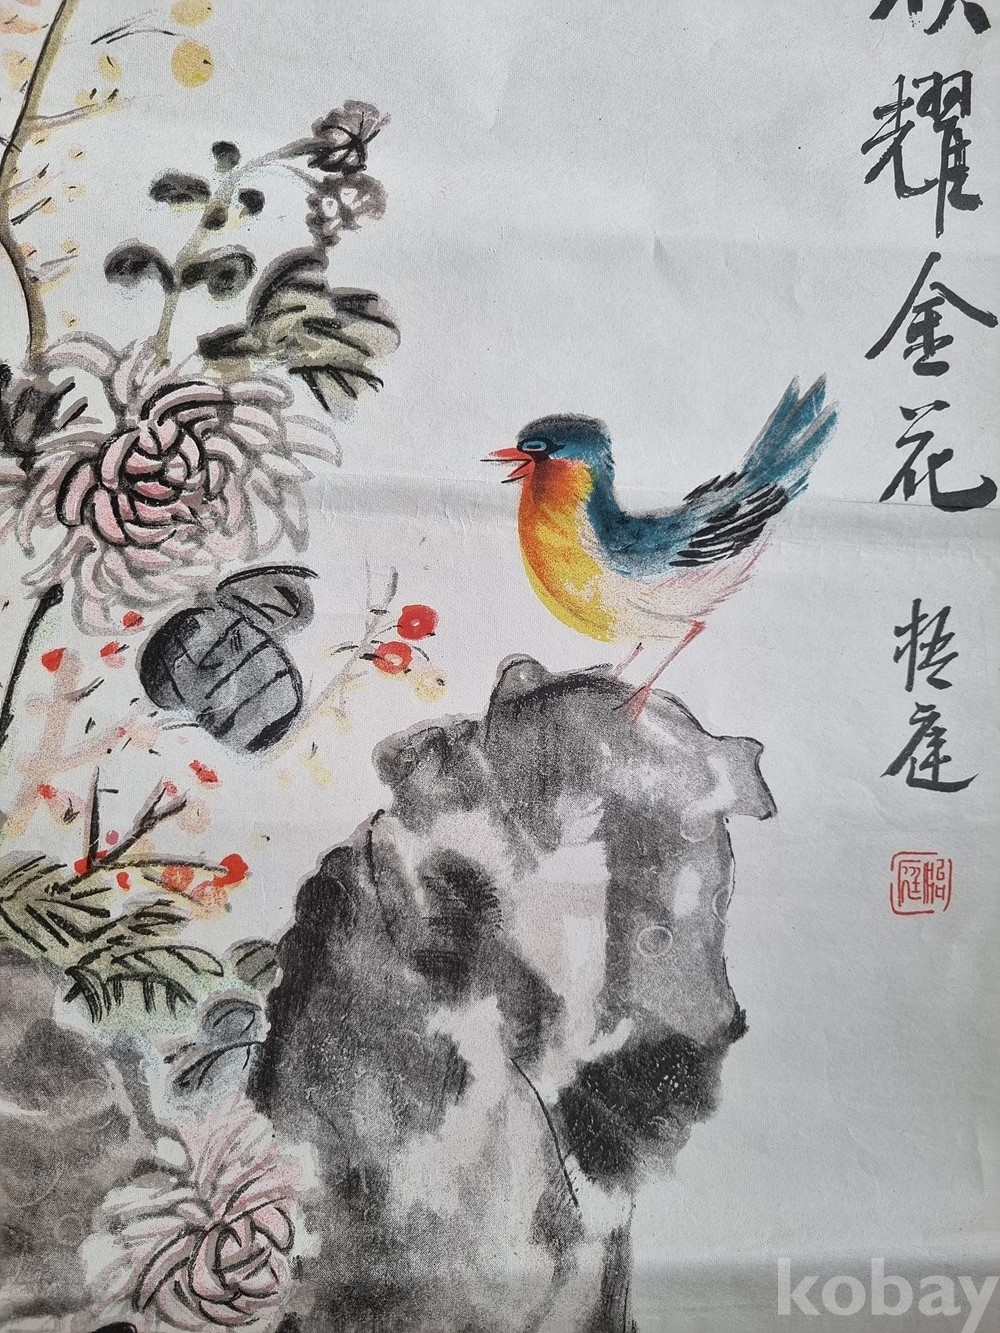 秋耀金花
梧庭
kobay